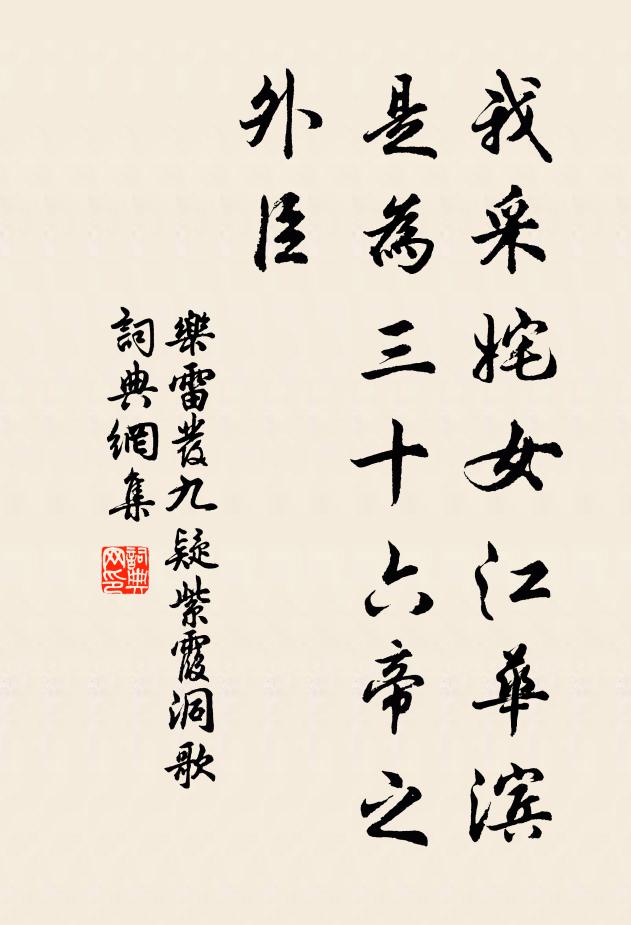 我采姹女江華滨
是為三十六帝之
外臣
樂雷發九疑紫霞洞歌
詞典網集
詞典网印